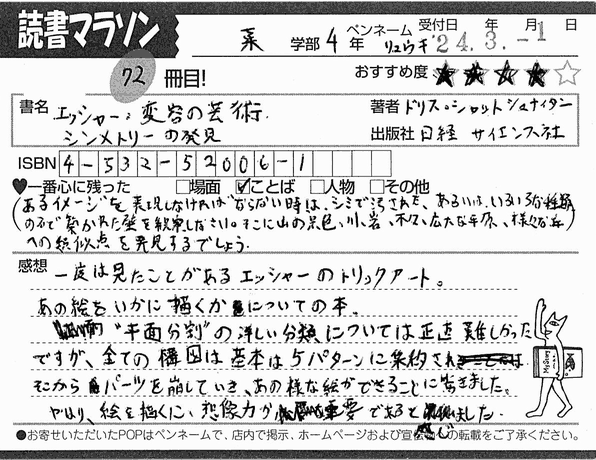 読書マラソン
72冊目!
薬 学部 4年 ペンネーム リュウキ 受付日 '24.3.-1 年 月 日
おすすめ度 ★★★★☆
書名 エッシャー:変容の芸術
シンメトリーの発見
著者 ドリス・シャットシュナイダー
出版社 日経サイエンス社
ISBN 4-532-52006-1
♥一番心に残った □場面 ☑ことば □人物 □その他
(あるイメージを表現しなければならない時は、シミで汚された、あるいは、いろいろな種類
の石で築かれた壁を観察しなさい。そこに山の景色、川、岩、木々、広大な平原、様々な丘
への類似点を発見するでしょう。
感想 一度は見たことがあるエッシャーのトリックアート。
あの絵をいかに描くかについての本。
"平面分割"の詳しい分類については正直難しかった
ですが、全ての構図は基本は5パターンに集約され
そこからパーツを崩していき、あの様な絵ができることに驚きました。
やはり、絵を描くに、想像力が重要であると感じました。
●お寄せいただいたPOPはペンネームで、店内で掲示、ホームページおよび宣伝物への転載をご了承ください。